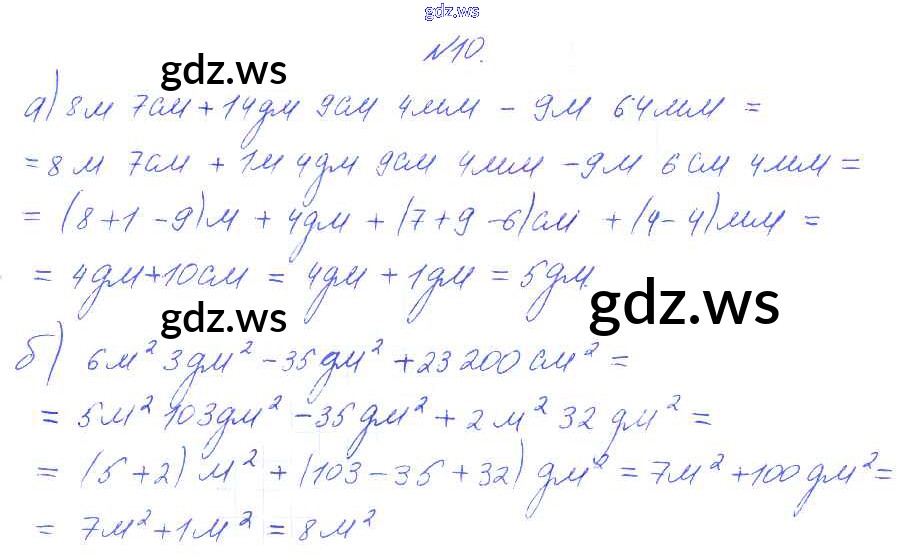 gdz.ws
№10.
gdz.ws
а) 8м 7см + 14дм 9см 4мм - 9м 64мм =
= 8 м 7см + 1м 4дм 9см 4мм - 9м 6см 4мм =
= (8+1-9)м + 4дм + (7+9-6)см + (4-4)мм =
= 4дм+10см = 4дм + 1дм = 5дм.
gdz.ws
gdz.ws
б) 6м² 3дм² - 35дм² + 23200см² =
= 5м² 103дм² - 35дм² + 2м² 32 дм² =
= (5+2) м² + (103-35+32) дм² = 7м² + 100дм² =
= 7м² + 1м² = 8м²